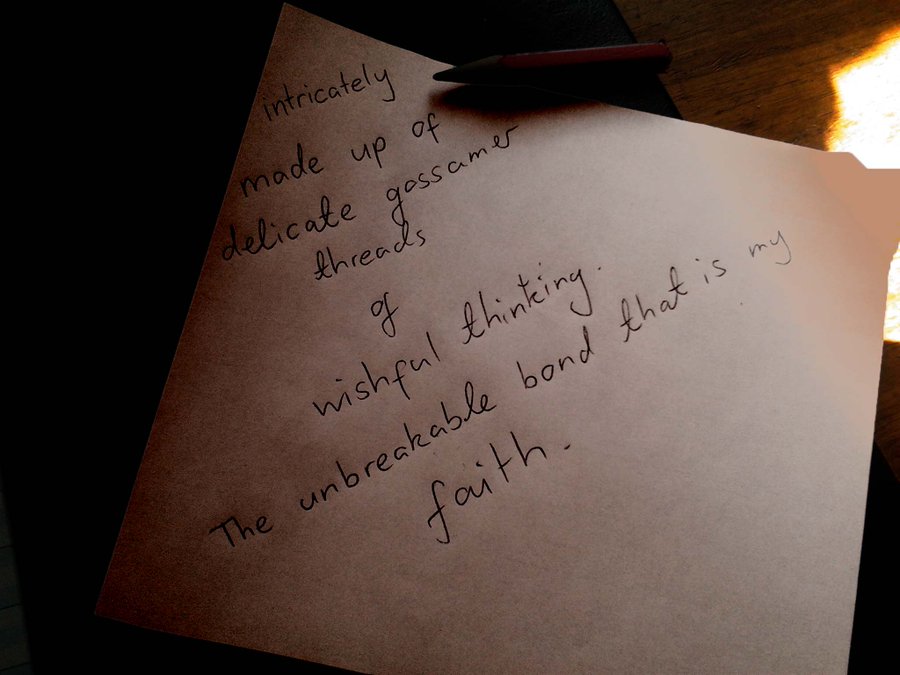 intricately
made up of
delicate gossamer
threads
of
wishful thinking.
The unbreakable bond that is my
faith.